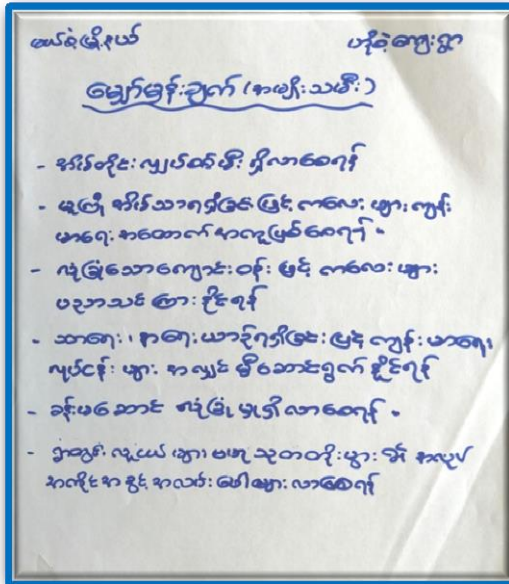 မယ်စဲ့မြို့နယ် ဟိုစဲ့ကျေးရွာ
မျှော်မှန်းချက် (အမျိုးသမီး)
- အိမ်တိုင်း လျှပ်စစ်မီး ရှိလာစေရန်
- ယူကြုံ အိမ်သာရရှိခြင်းဖြင့် ကလေးများ ကျန်း
မာရေး အထောက် အကူဖြစ်စေရန်။
- လုံခြုံသောကျောင်းဝန်းဖြင့် ကလေးများ
ပညာသင်ကြားနိုင်ရန်
- သာရေး၊ နာရေးယာဉ်ရရှိခြင်းဖြင့် ကျန်းမာရေး၊
လုပ်ငန်းများ အလျင်မီဆောင်ရွက်နိုင်ရန်
- ခန်းမဆောင် လုံခြုံမှုရှိလာစေရန်။
- ရွာတွင်းလူငယ်များ ဗဟုသုတတိုးပွား၍ အလုပ်
အကိုင်အခွင့်အလမ်းပေါများလာစေရန်